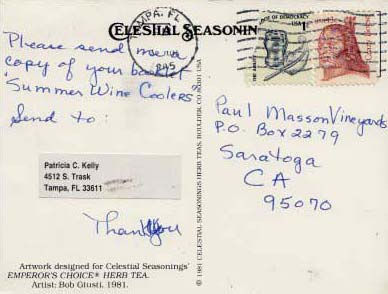 CELESTIAL SEASONIN
TAMPA, FL
Please send me
copy of your booklet
"Summer Wine Coolers"
Send to:
Patricia C. Kelly
4512 S. Trask
Tampa, FL 33611
Thank You
Artwork designed for Celestial Seasonings'
EMPEROR'S CHOICE® HERB TEA.
Artist: Bob Giusti, 1981.
© 1981 CELESTIAL SEASONINGS HERB TEAS, BOULDER, CO 80301 USA
OF DEMOCRACY
Paul Masson Vineyards
P.O. Box 2279
Saratoga
CA
95070